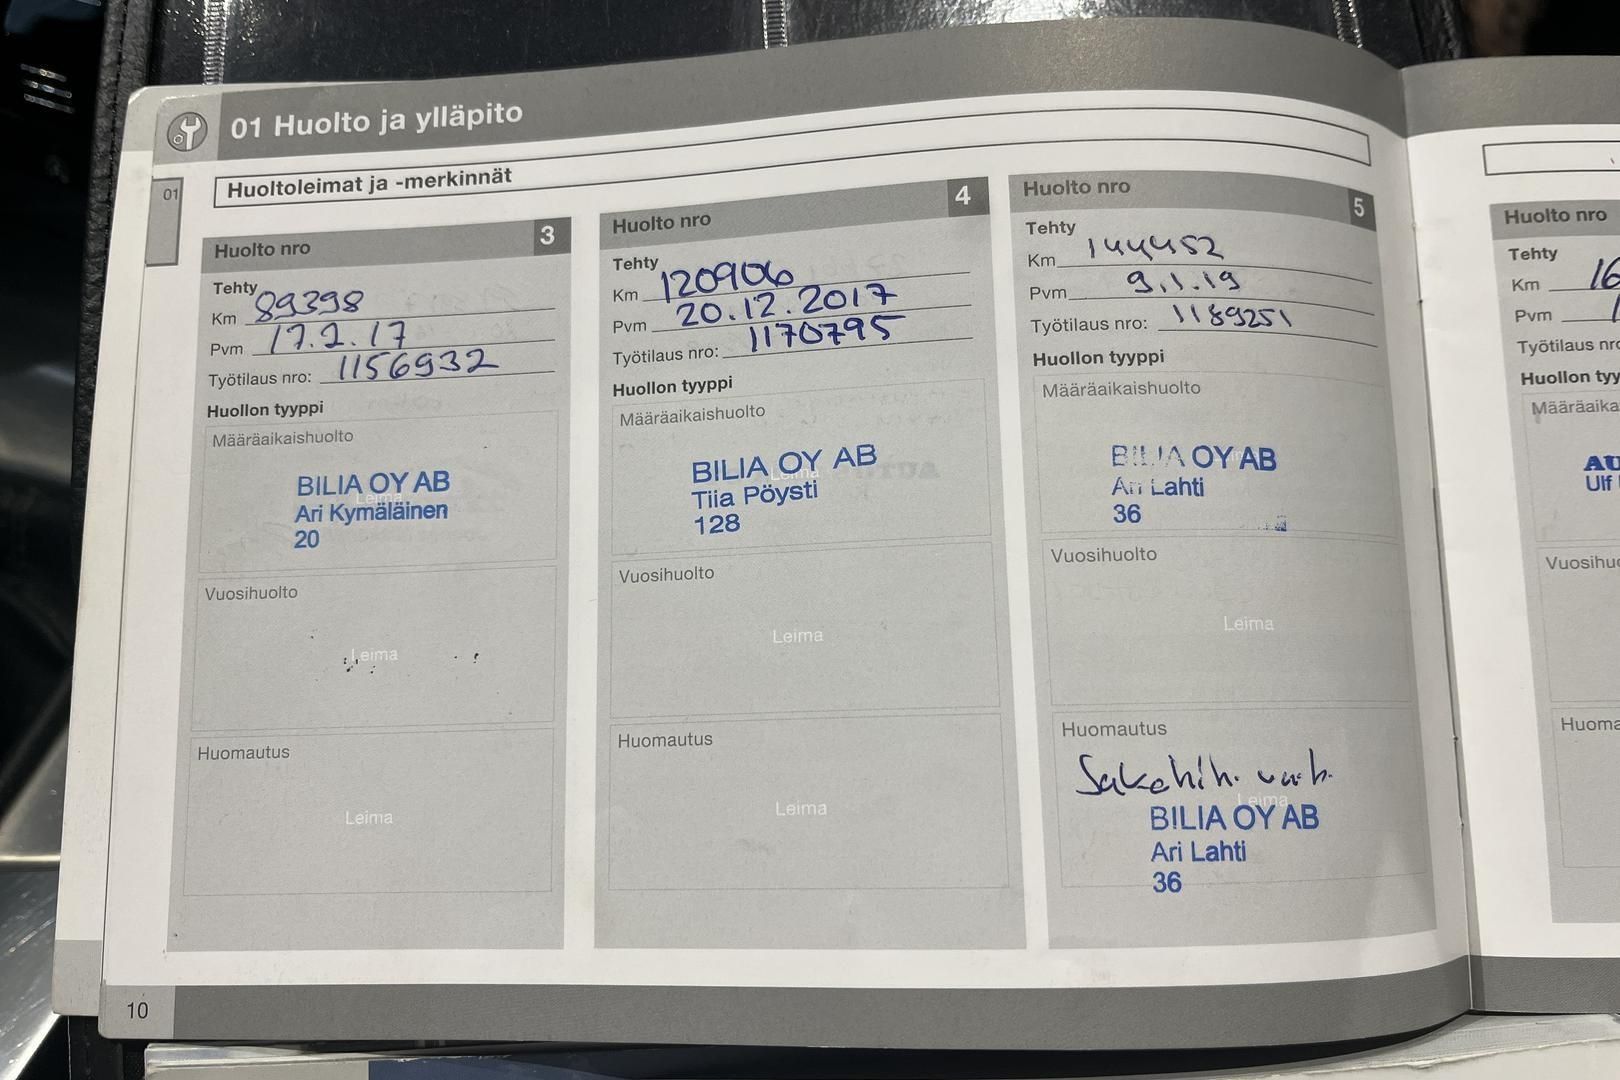 01 Huolto ja ylläpito
01
Huoltoleimat ja -merkinnät
Huolto nro 3
Tehty
Km 89398
Pvm 17.2.17
Työtilaus nro: 1156932
Huollon tyyppi
Määräaikaishuolto
Leima
BILIA OY AB
Ari Kymäläinen
20
Vuosihuolto
Leima
Huomautus
Leima
Huolto nro 4
Tehty
Km 120906
Pvm 20.12.2017
Työtilaus nro: 1170795
Huollon tyyppi
Määräaikaishuolto
Leima
BILIA OY AB
Tiia Pöysti
128
Vuosihuolto
Leima
Huomautus
Leima
Huolto nro 5
Tehty
Km 144452
Pvm 9.1.19
Työtilaus nro: 1189251
Huollon tyyppi
Määräaikaishuolto
BILIA OY AB
Ari Lahti
36
Vuosihuolto
Leima
Huomautus
Leima
BILIA OY AB
Ari Lahti
36
Huolto nro
Tehty
Km 16
Pvm
Työtilaus nro
Huollon tyy
Määräaika
AU
Ulf
Vuosihuo
Huoma
10